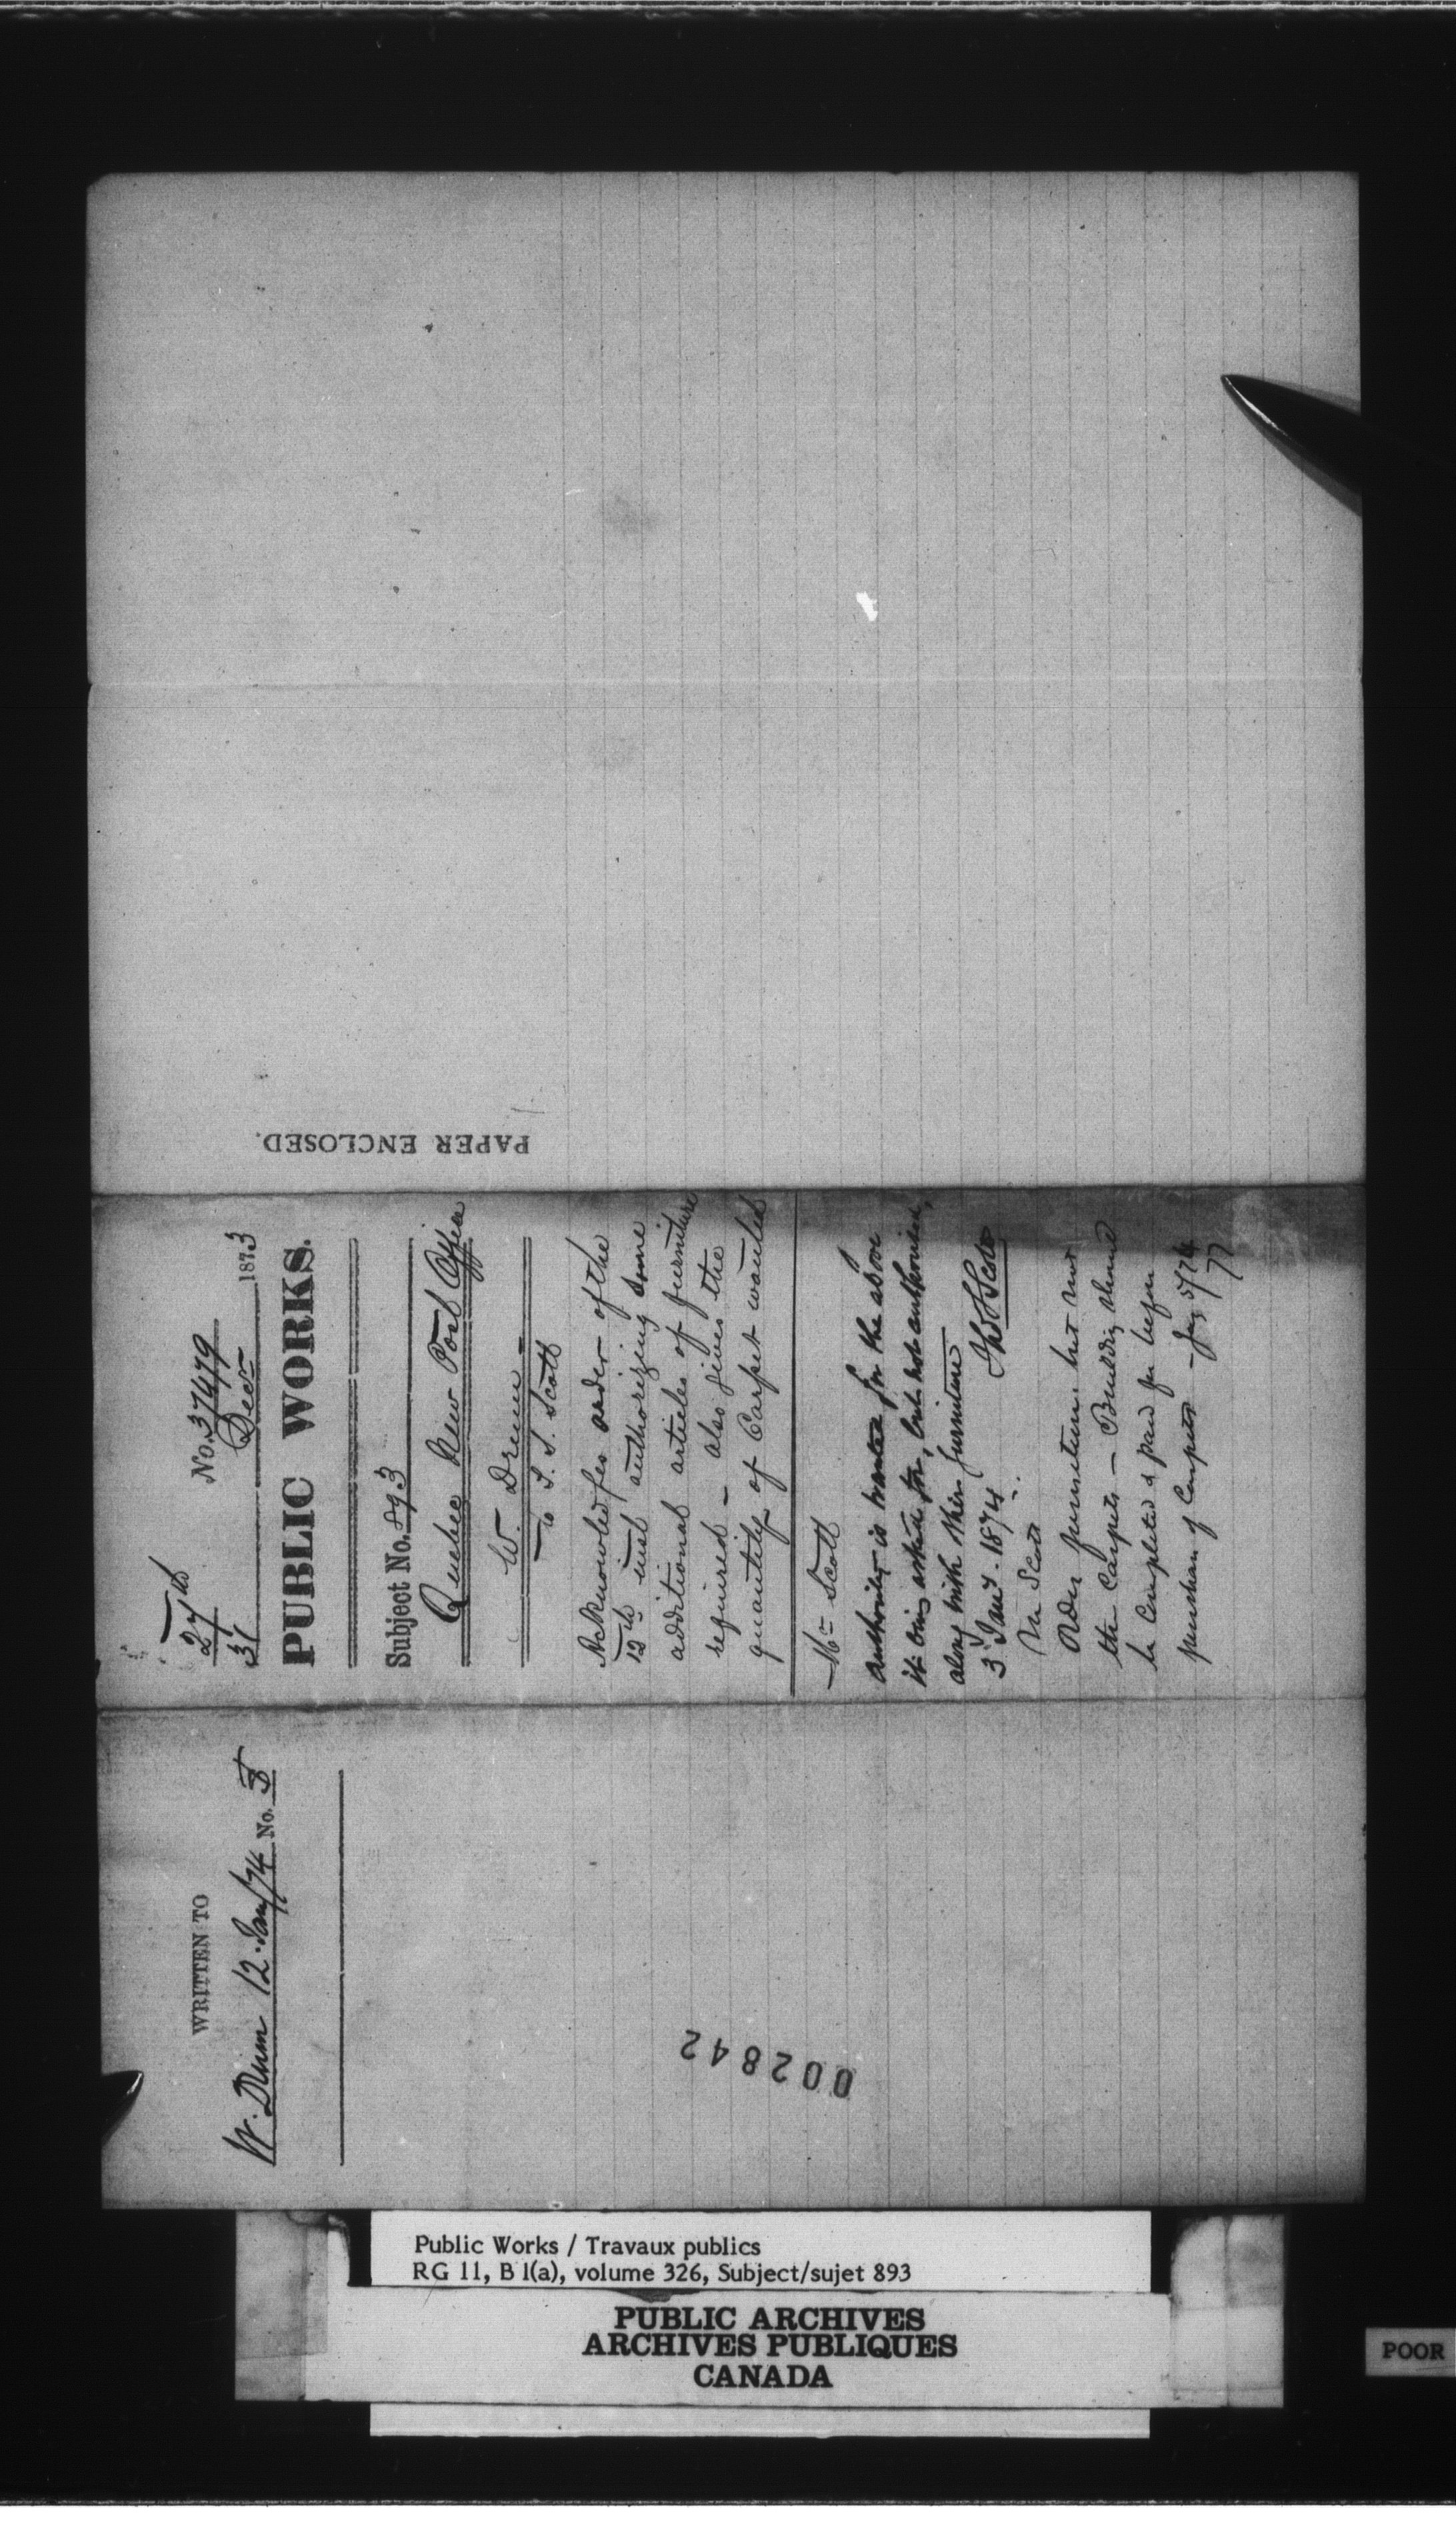 No. 37479
27th
31 Decr 1873
PUBLIC WORKS.
Subject No. 893
Quebec New Post Office
W. Drum
To T. S. Scott
Acknowledges order of the
12th inst authorizing some
additional articles of furniture
required - also gives the
quantity of Carpet wanted
Mr Scott
Authority is wanted for the above
it being asked for, but not authorised,
along with their furniture
3 Jany. 1874. Thos S Scott
Mr Scott
Order furniture but not
the Carpets - Building should
be completed & paid for before
purchase of Carpets - Jany 5/74
PAPER ENCLOSED.
WRITTEN TO
W. Drum 12. Jany/74 No. 5
002842
Public Works / Travaux publics
RG 11, B 1(a), volume 326, Subject/sujet 893
PUBLIC ARCHIVES
ARCHIVES PUBLIQUES
CANADA
POOR